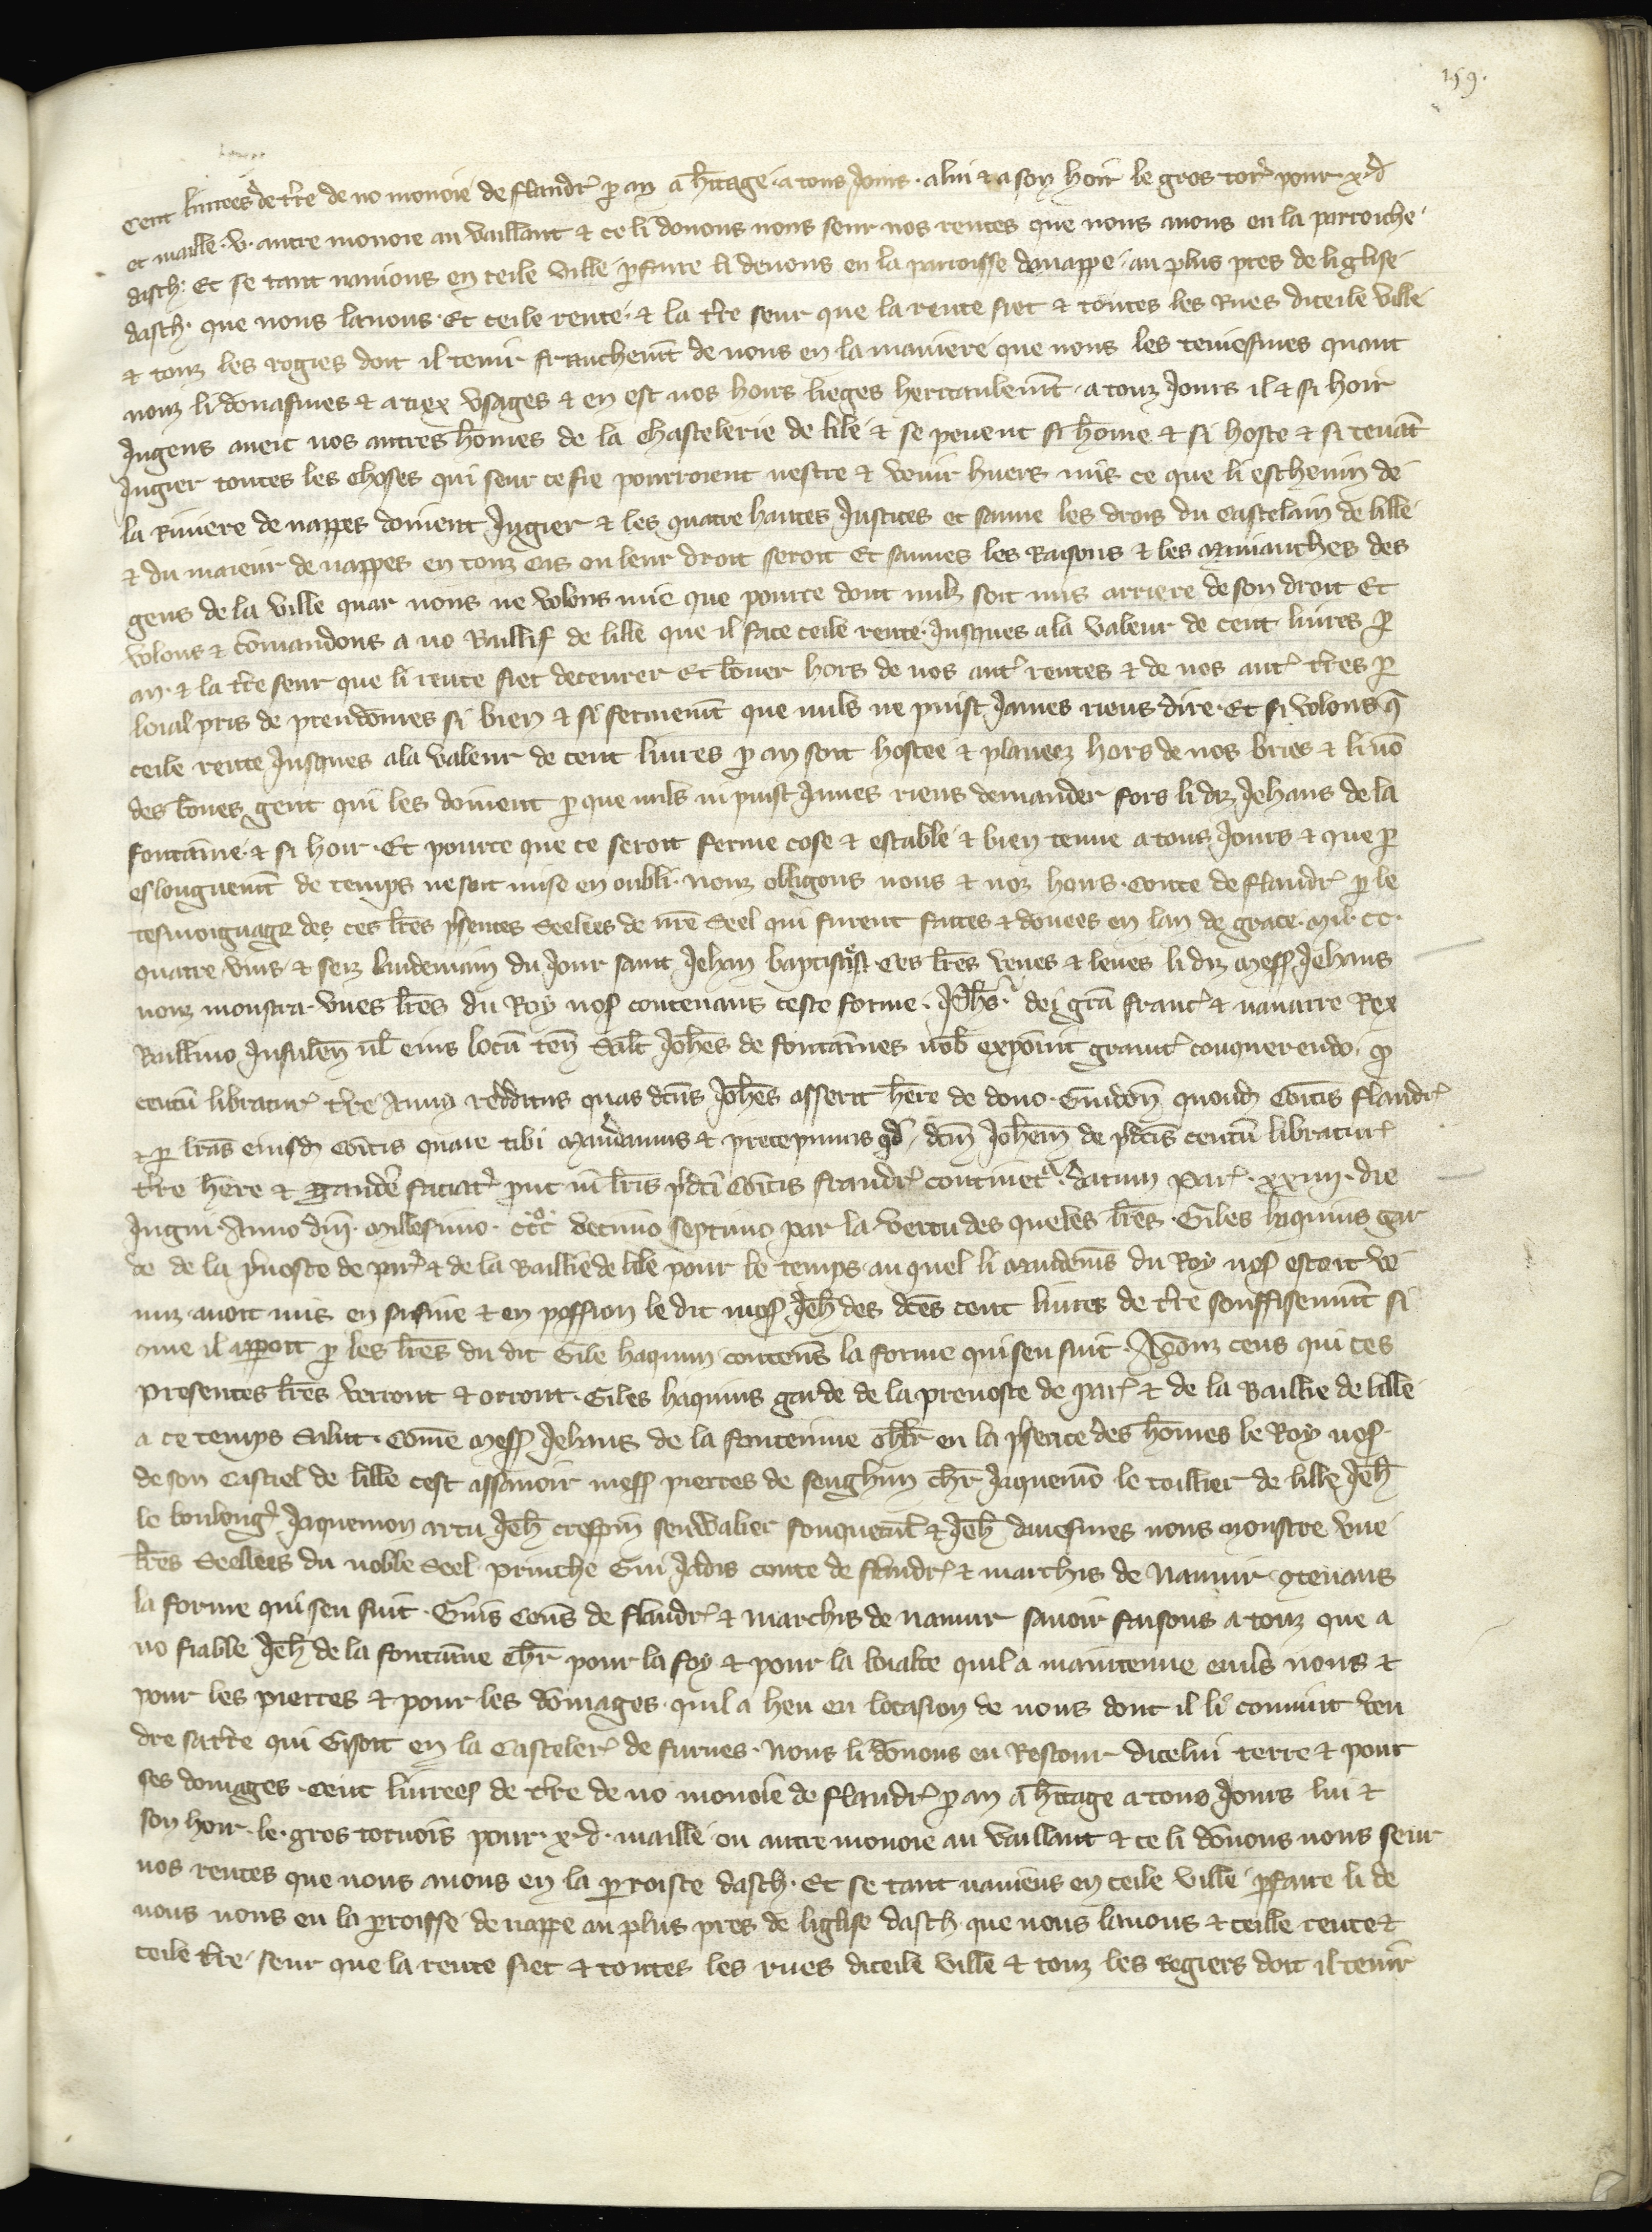 159.
Cent livrees de t̃re de no monoie de flandr̃ p an a h̃itage. a tous Jours. a lui & a son hoir le gros tor̃ pour x. d̃
et maille. v. autre monoie au vaillant & ce li donons nous seur nos rentes que nous avons en la parroiche
dasch. Et se tant navions en ceile ville p̃faire li devons en la parroisse donappe. au plus pres de liglise
dasch. que nous lavons. Et ceile rente. & la t̃re seur que la rente siet & toutes les Rues diceile ville
& touz les rogies doit il tenir franchem̃t de nous en la maniere que nous les teniesmes quant
nouz li donasmes & a tiex usages & en est nos hoirs lieges heritaulem̃t. a touz Jours il & si hoir
Jugens aveic nos autres hõmes de la chastelerie de lile & se pevent si hõme & si hoste & si tenãt
Jugier toutes les choses qui seur ce fie pourroient nestre & venir huers mis ce que li eschevin de
la Riviere de nappes doivent Jugier & les quatre hautes Justices et sauve les drois du castelain de lille
& du maieur de nappes en touz cas ou leur droit seroit Et sauves les Raisons & les Anuianches des
gens de la ville quar nous ne volons mie que pour ce dont nulz soit mis arriere de son droit Et
volons & cõmandons a no Baillif de lille que il face ceile rente. Jusques a la valeur de cent livres p
an. & la t̃re seur que li rente siet deceurer Et bõner hors de nos aut̃ rentes & de nos aut̃ t̃res p
loial pris de preudõmes si bien & si fermem̃t que nuls ne puist James riens dire. Et si volons q̃
ceile rente Jusques a la valeur de cent livres p an soit hostee & planeez hors de nos briés & li nõ
des bõnes gent qui les doivent p que nuls ni puist James riens demander fors li diz Jehans de la
fontaĩne. & si hoir. Et pource que ce seroit ferme cose & estable & bien tenue a tous Jours & que p
eslonguem̃t de temps ne soit mise en oubli. nouz obligons nous & noz hoirs. Conte de flandr̃ p le
tesmoignage des ces l̃res p̃sentes Seelees de nr̃e Seel qui furent faites & donees en lan de grace. mil. CC.
quatre vins & seiz lendemain du Jour saint Jehan baptiste. Ces l̃res veues & leues li diz mess̃ Jehans
nouz monstra. unes l̃res du Roy nos̃ contenans ceste forme. Joh̃s. dei grã franc̃ & navarre Rex
Baillivo Insulen̄ vl̃ eius locũ ten̄ Sal̃t Joh̃es de fontaĩnes nob̃ exposuit gravit̃ conquerendo. q̃
centũ libratur̃ t̃re Annuj redditus quas dc̃us Joh̃es asserit h̃ere de dono. Guidon̄ quond̃ Com̃itis flandr̃
& p l̃ras eiusd̃ Com̃itis quare tibi Mandamus & precepimus qd̃ dc̃m Joh̃em de p̃dc̃is centũ libratur̃
t̃re h̃ere & gauder̃ faciat̃ p̃ut in l̃ris p̃dc̃i Com̃itis flandr̃ continet̃. datum par̃. xxiiij. die
Jugni. Anno dñi. Millesimo. ccc̊ decimo septimo par la vertu des queles l̃res. Giles haquins gar
de de la p̃voste de par̃ & de la Baillie de lile pour le temps. au quel li mandem̃s du Roy nos̃ estoit ve
nuz avoit mis en saisine & en possion le dit mess̃ Jeh̃ des dc̃es cent livres de t̃re souffisemm̃t si
cõme il appoit p les l̃res du dit Gile haquin contens̃ la forme qui sen suit. A touz ceus qui ces
presentes l̃res verront & orront. Giles haquins garde de la prevoste de par̃ & de la Baillie de lille
a ce temps Salut. Cõme mess̃ Jehans de la fontenine ch̃lr en la p̃sence des hõmes le Roy nos̃
de son Castiel de lille cest assavoir mess̃ pierres de senghin ch̃r Jaquemõ le toillier de lille Jeh̃
le boulong̃ Jaquemon artu Jeh̃ crespin senwalier fouquem̃t & Jeh̃ davesmes nous monstre une
l̃res Seellees du noble Seel Prinche Gui Jadis conte de flandr̃ & marchis de Namur. 9tenans
la forme qui sen suit. Guis Cuens de flandr̃ & marchis de namur savoir faisons a touz que a
no fiable Jeh̃ de la fontaĩne ch̃r pour la foy & pour la loialte quil a maintenue envers nous &
pour les pierres & pour les dõmages. quil a heu en locasion de nous dont il li convint ven
dre sa t̃re qui Gisoit en la Casteler̃ de furnes. nous li dõnons en Restour dicelui terre & pour
ses domages. cent livrees de t̃re de no monoie de flandr̃ p an a h̃itage a tous Jours lui &
son hoir. le. gros tornois pour. x. d. maille ou autre monoie au vaillant & ce li dõnons nous seur
nos rentes que nous avons en la proiste dasch. Et se tant naviens en ceile ville p̃faire li de
vons nous en la p̃roisse de nappe au plus pres de liglise dasch que nous lavons & ceille rente &
ceile t̃re. seur que la rente siet & toutes les rues diceile ville & touz les Regiers doit il tenir